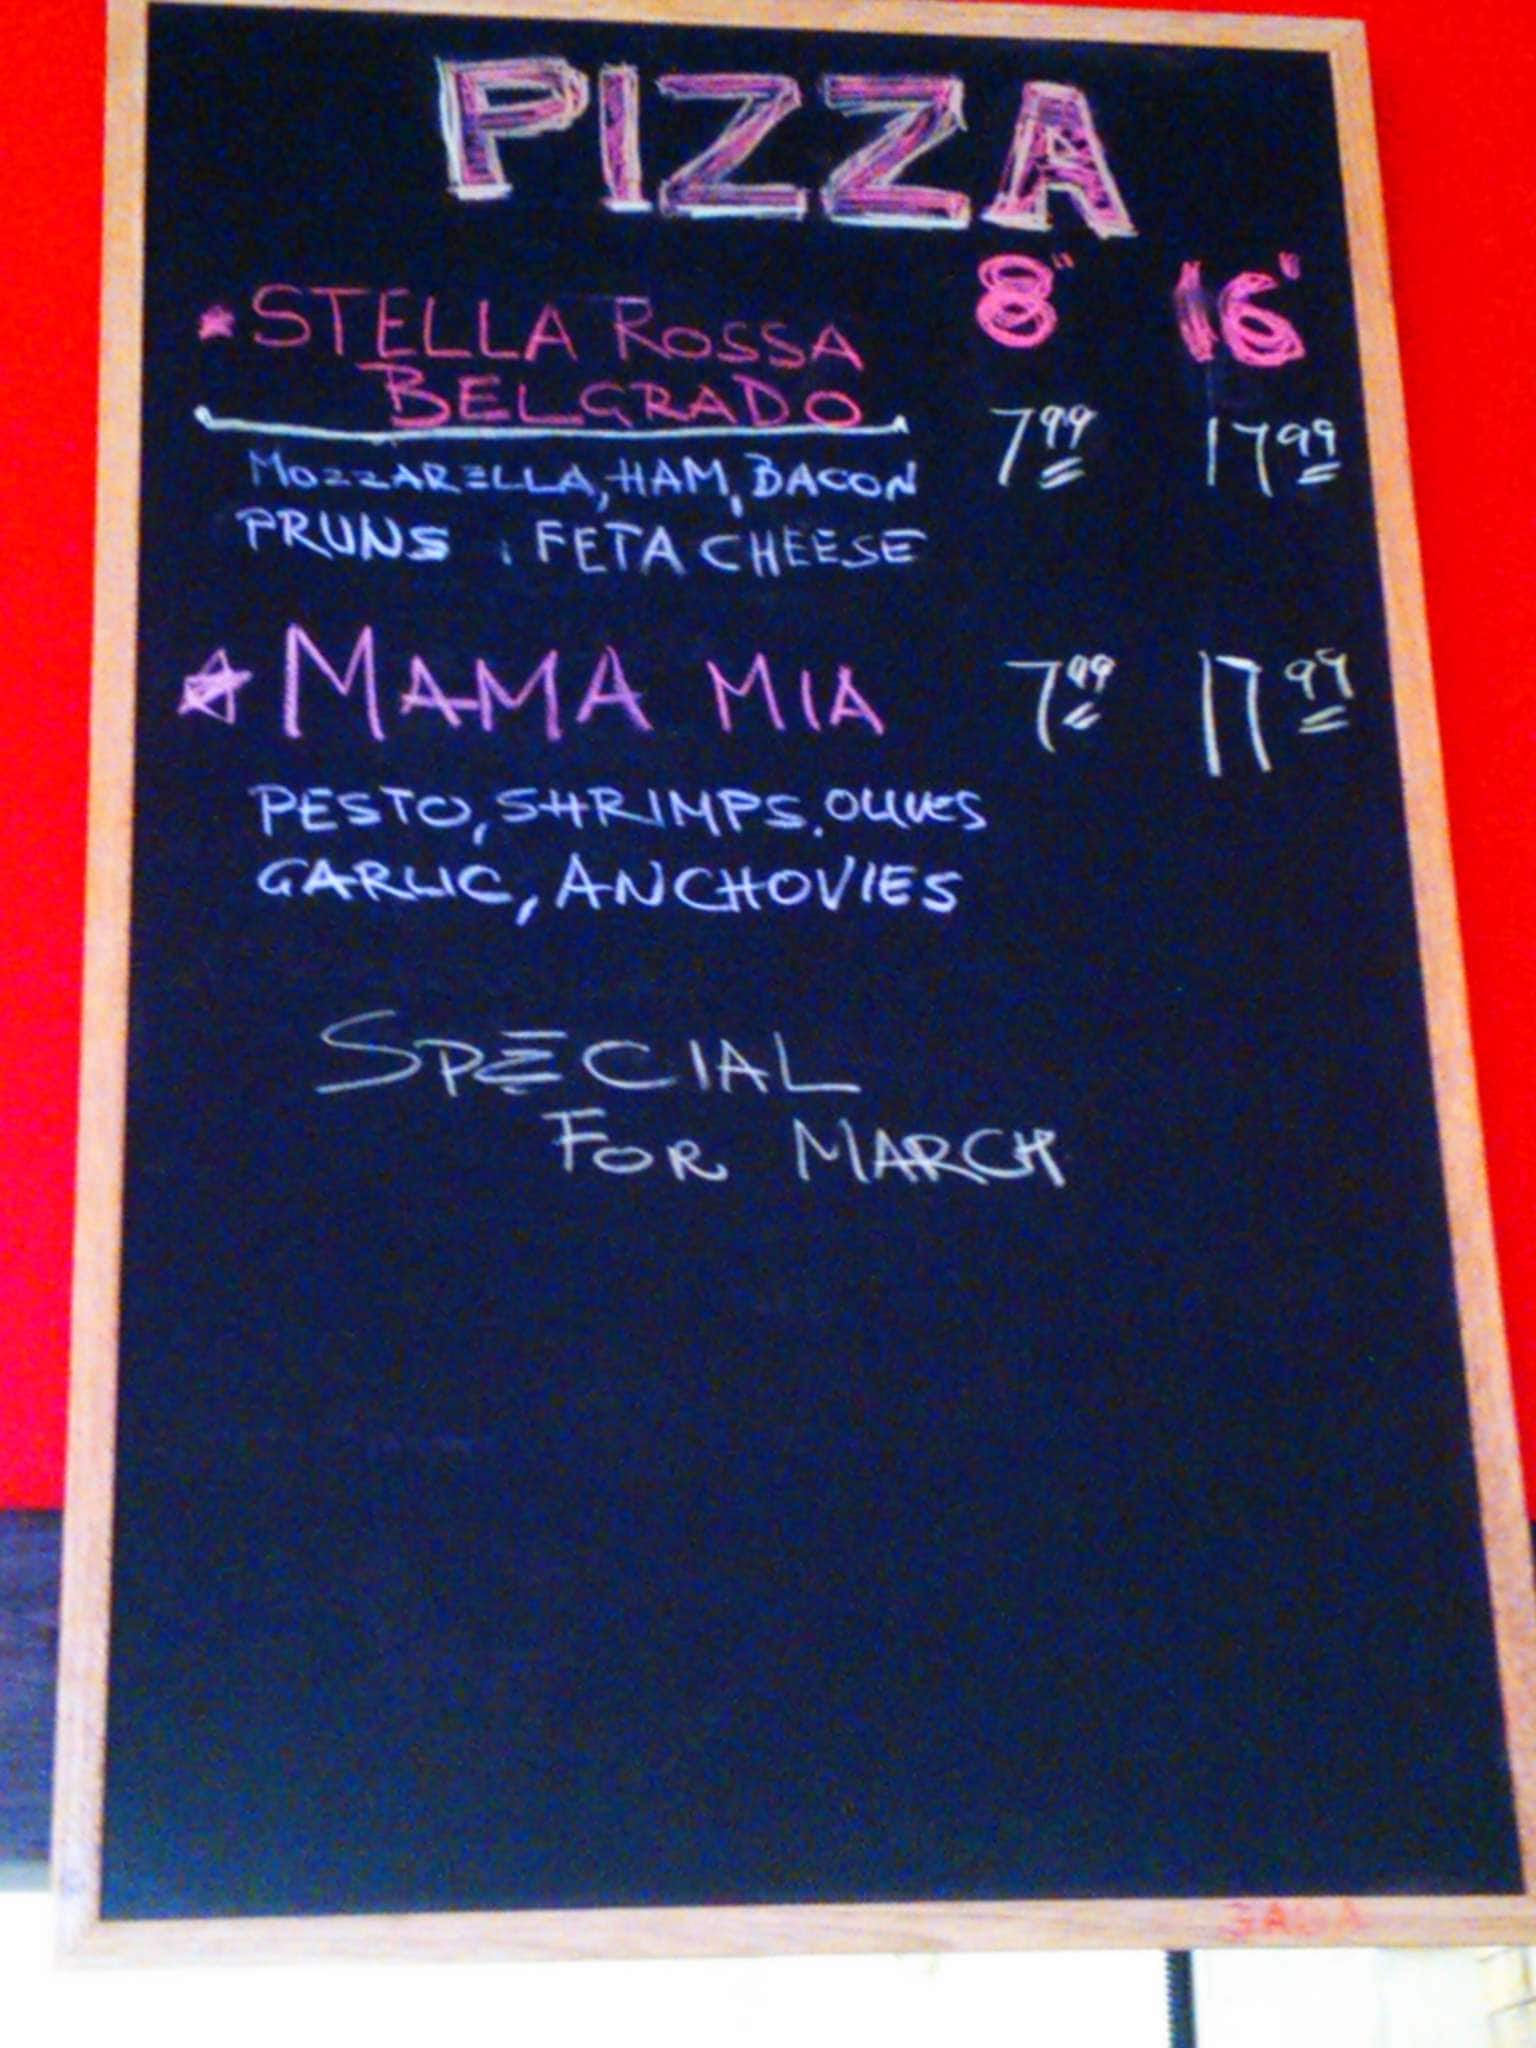 PIZZA
8" 16"
STELLA ROSSA
BELGRADO 7.99 17.99
MOZZARELLA, HAM, BACON
PRUNS, FETA CHEESE
MAMA MIA 7.99 17.99
PESTO, SHRIMPS, OLIVES
GARLIC, ANCHOVIES
SPECIAL
FOR MARCH